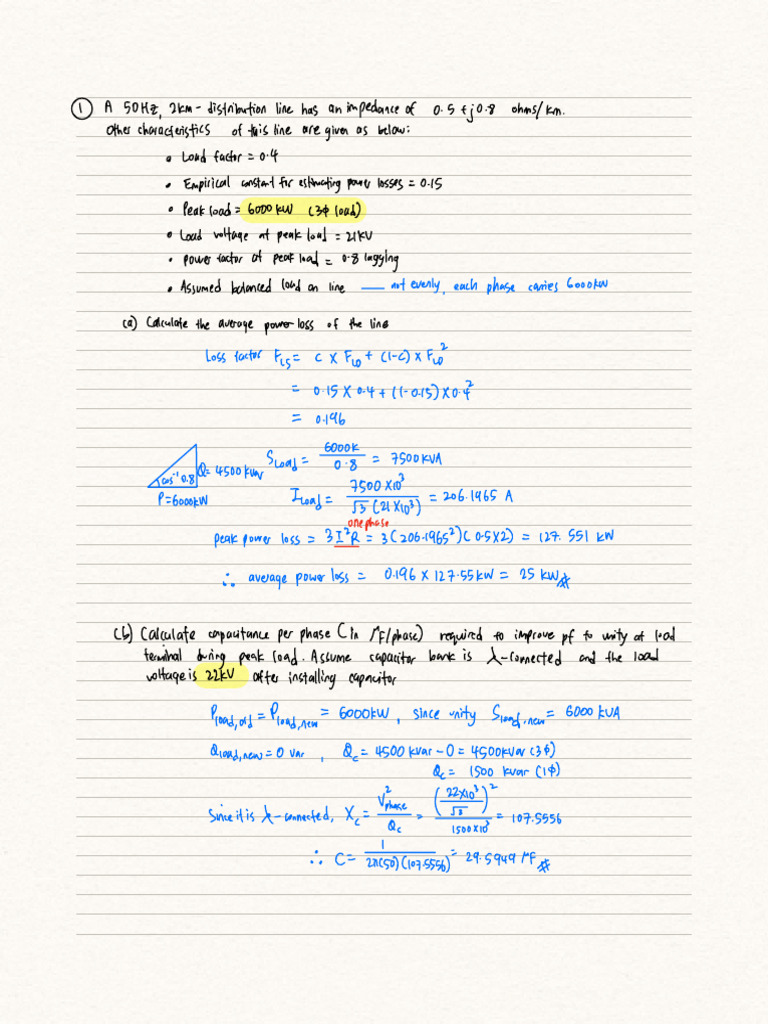 ① A 50Hz, 2km - distribution line has an impedance of 0.5 + j0.8 ohms/km.
Other characteristics of this line are given as below:
• Load factor = 0.4
• Empirical constant for estimating power losses = 0.15
• Peak load = 6000 kW (3Φ load)
• Load voltage at peak load = 21kV
• power factor at peak load = 0.8 lagging
• Assumed balanced load on line — not evenly, each phase carries 6000kW
(a) Calculate the average power loss of the line
Loss factor F_LS = C × F_LD + (1-C) × F_LD²
= 0.15 × 0.4 + (1-0.15) × 0.4²
= 0.196
S_Load = 6000K / 0.8 = 7500 KVA
cos⁻¹ 0.8 Q = 4500 kvar
P = 6000kW
I_Load = 7500 × 10³ / √3 (21 × 10³) = 206.1965 A
one phase
peak power loss = 3 I²R = 3(206.1965²)(0.5×2) = 127.551 kW
∴ average power loss = 0.196 × 127.55kW = 25 kW #
(b) Calculate capacitance per phase (in μF/phase) required to improve pf to unity at load
terminal during peak load. Assume capacitor bank is ⅄-connected and the load
voltage is 22kV after installing capacitor
P_load,old = P_load,new = 6000kW, since unity S_load,new = 6000 kVA
Q_load,new = 0 var, Q_c = 4500 kvar - 0 = 4500kvar (3Φ)
Q_c = 1500 kvar (1Φ)
Since it is ⅄-connected, X_c = V_phase² / Q_c = (22×10³ / √3)² / 1500×10³ = 107.5556
∴ C = 1 / 2π(50)(107.5556) = 29.5949 μF #